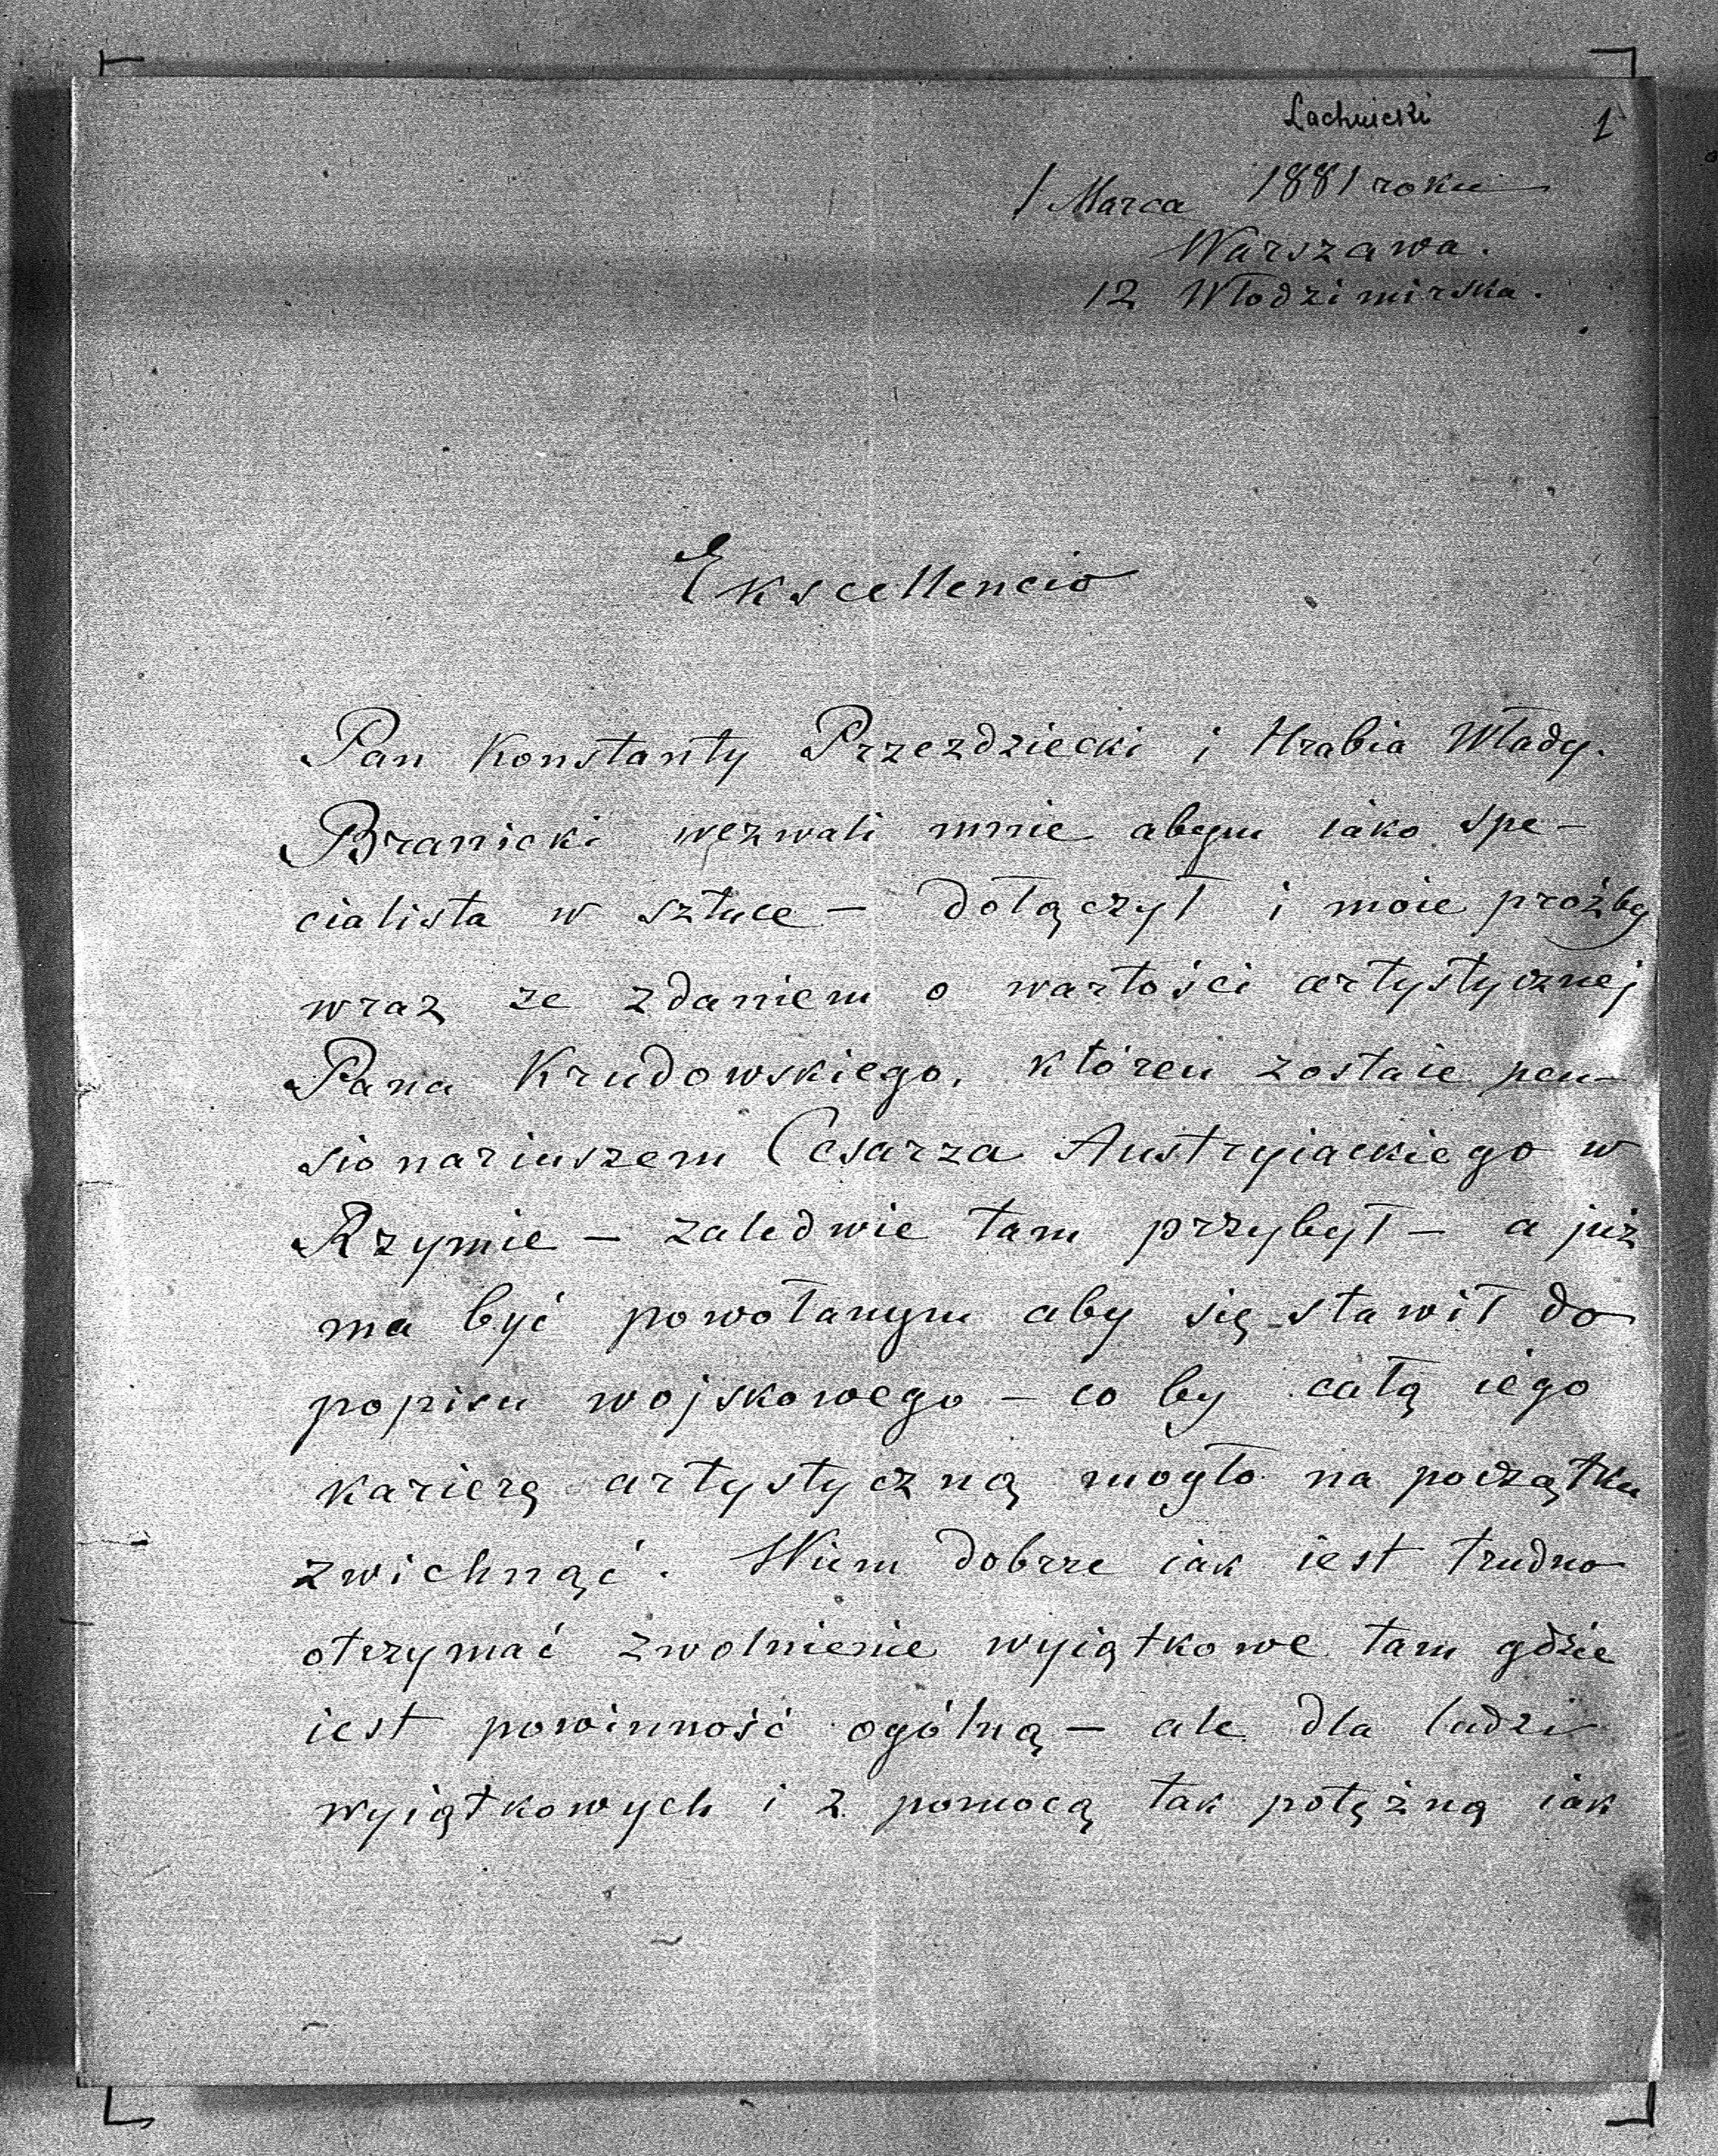 Lachnicki 1
1 Marca 1881 roku
Warszawa.
12 Włodzimirska.
Ekscellencio
Pan Konstanty Przezdziecki i Hrabia Włady.
Branicki wezwali mnie abym iako spe-
cialista w sztuce - dołączył i moie prożbę
wraz ze zdaniem o wartości artystycznej
Pana Krudowskiego, któren zostaie pen-
sionariuszem Cesarza Austryiackiego w
Rzymie - zaledwie tam przybył - a już
ma być powołanym aby się stawił do
popisu wojskowego - co by całą iego
karierę artystyczną mogło na początku
zwichnąć. Wiem dobrze iak iest trudno
otrzymać zwolnienie wyiątkowe tam gdzie
iest powinność ogólną - ale dla ludzi
wyiątkowych i z pomocą tak potężną iak